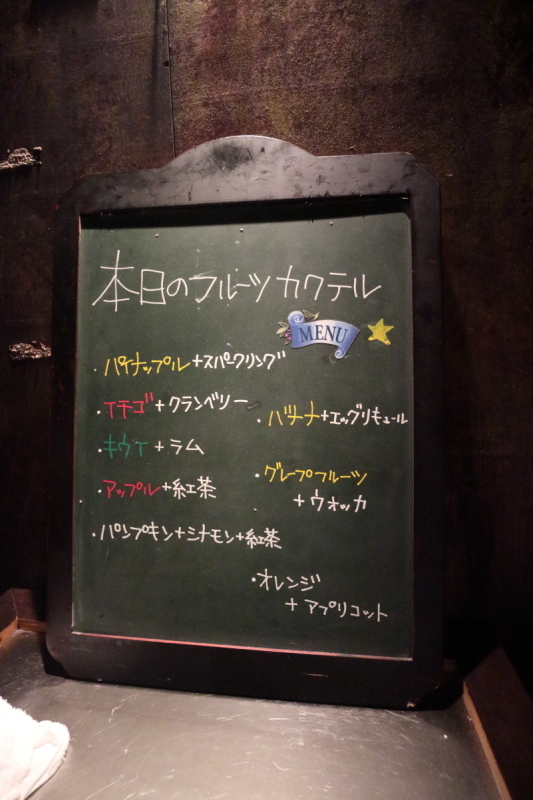 本日のフルーツカクテル
MENU
・パイナップル+スパークリング
・イチゴ+クランベリー
・キウイ+ラム
・アップル+紅茶
・パンプキン+シナモン+紅茶
・バナナ+エッグリキュール
・グレープフルーツ
+ウォッカ
・オレンジ
+アプリコット